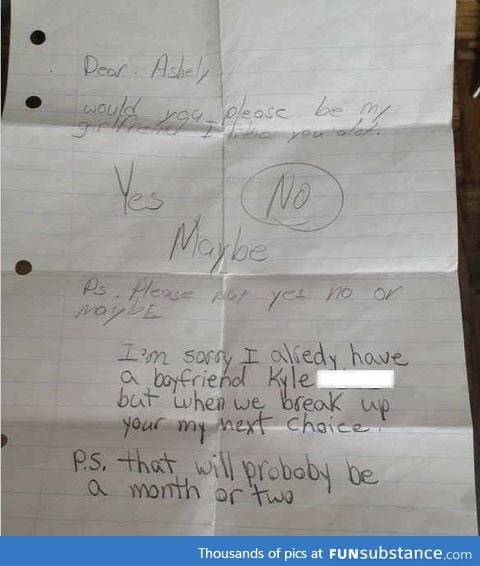 Dear. Ashely
would you please be my
girlfreind I like you alot.
Yes No
Maybe
Ps. Please put yes no or
maybe
I'm sorry I alredy have
a boyfriend Kyle
but when we break up
your my next choice.
P.S. that will proboby be
a month or two
Thousands of pics at FUNsubstance.com